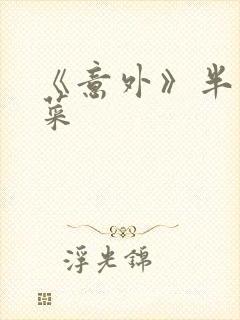 《意外》半
菜
浮光锦